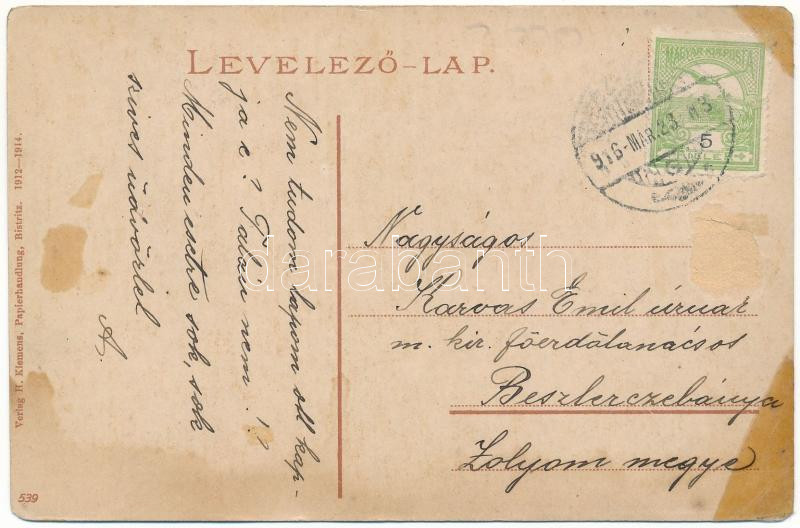 LEVELEZŐ-LAP.
MAGYAR KIR. POSTA
5
916-MÁR.23.
Nem tudom lapom ott kap-
ja e? Talán nem.!?
Minden estre sok, sok
szives üdvözlet
A.
Nagyságos
Karvas Emil úrnak
m. kir. főerdőtanácsos
Beszterczebánya
Zolyom megye
Verlag H. Klemens, Papierhandlung, Bistritz. 1912—1914.
539
darabanth